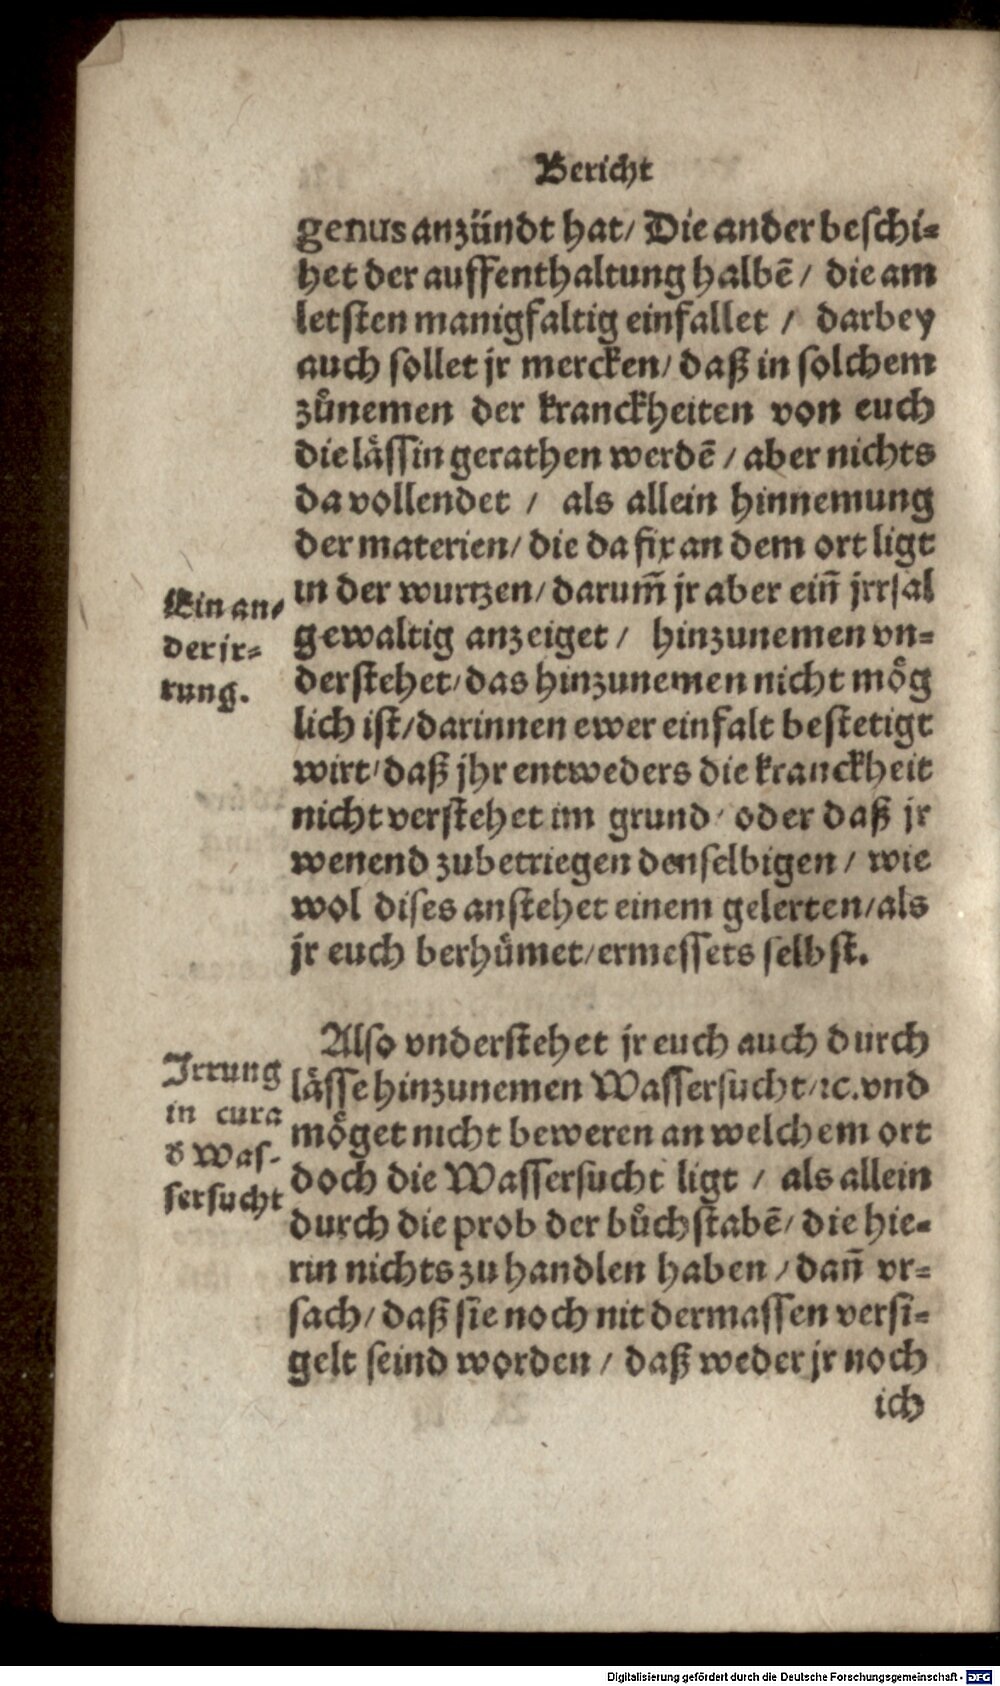 Bericht
genus anzündt hat/ Die ander beschi-
het der auffenthaltung halbē/ die am
letsten manigfaltig einfallet / darbey
auch sollet jr mercken/ daß in solchem
zůnemen der kranckheiten von euch
die lässin gerathen werdē/ aber nichts
da vollendet / als allein hinnemung
der materien/ die da fix an dem ort ligt
in der wurtzen/ darum̄ jr aber ein̄ jrrsal
gewaltig anzeiget / hinzunemen vn-
derstehet/ das hinzunemen nicht mög
lich ist/ darinnen ewer einfalt bestetigt
wirt/ daß jhr entweders die kranckheit
nicht verstehet im grund/ oder daß jr
wenend zubetriegen denselbigen / wie
wol dises anstehet einem gelerten/ als
jr euch berhůmet/ ermessets selbst.
Ein an-
der jr-
rung.
Also vnderstehet jr euch auch durch
lässe hinzunemen Wassersucht/ ꝛc. vnd
möget nicht beweren an welchem ort
doch die Wassersucht ligt / als allein
durch die prob der bůchstabē/ die hie-
rin nichts zu handlen haben / dan̄ vr-
sach/ daß sie noch nit dermassen versi-
gelt seind worden / daß weder jr noch
ich
Irrung
in cura
d̕ Was-
sersucht
Digitalisierung gefördert durch die Deutsche Forschungsgemeinschaft - DFG